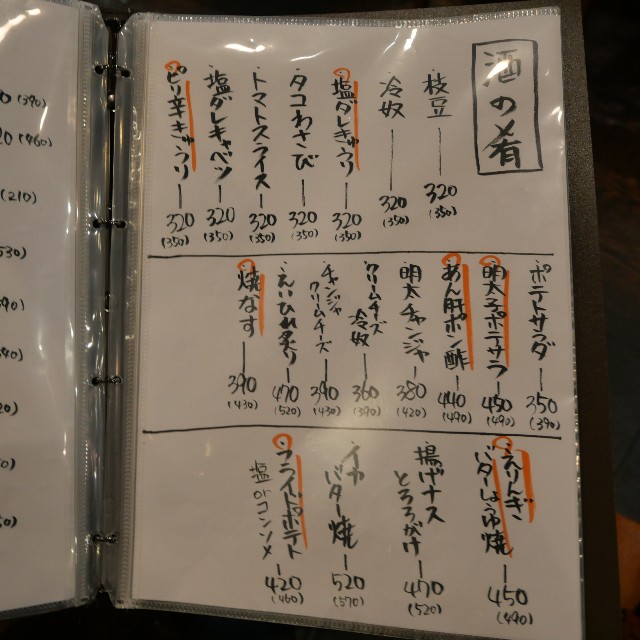 酒の肴
枝豆 320 (350)
冷奴 320 (350)
塩ダレきゅうり 320 (350)
タコわさび 320 (350)
トマトスライス 320 (350)
塩ダレキャベツ 320 (350)
ピリ辛きゅうり 320 (350)
ポテトサラダ 350 (390)
明太ポテサラ 450 (490)
あん肝ポン酢 440 (490)
明太チャンジャ 380 (420)
クリームチーズ冷奴 360 (390)
チャンジャクリームチーズ 390 (430)
えいひれ炙り 470 (520)
焼なす 390 (430)
えりんぎ
バターしょうゆ焼 450 (490)
揚げナス
とろろがけ 470 (520)
イカ
バター焼 520 (570)
フライドポテト
塩orコンソメ 420 (460)
(390)
(460)
(210)